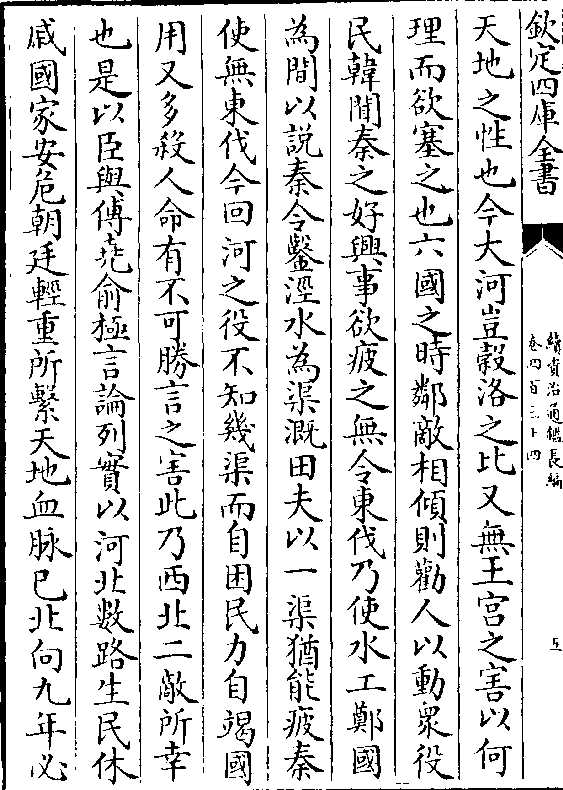 欽定四庫全書
續資治通鑑長編
卷四百三十四
五
天地之性也今大河豈穀洛之比又無王宮之害以何
理而欲塞之也六國之時鄰敵相傾則勸人以動衆役
民韓聞秦之好興事欲疲之無令東伐乃使水工鄭國
為間以説秦令鑿涇水為渠溉田夫以一渠猶能疲秦
使無東伐今回河之役不知幾渠而自困民力自竭國
用又多殺人命有不可勝言之害此乃西北二敵所幸
也是以臣與傅堯俞極言論列實以河北數路生民休
戚國家安危朝廷輕重所繫天地血脉已北向九年必